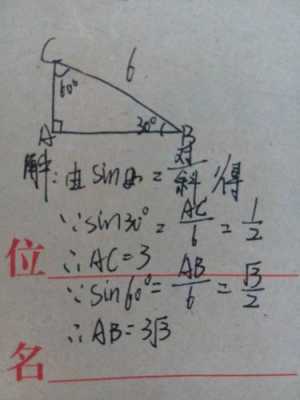 C
6
60°
A
30°
B
解:由sin∂=对/斜 得
∵sin30°=AC/6=1/2
∴AC=3
∵sin60°=AB/6=√3/2
∴AB=3√3
位
名